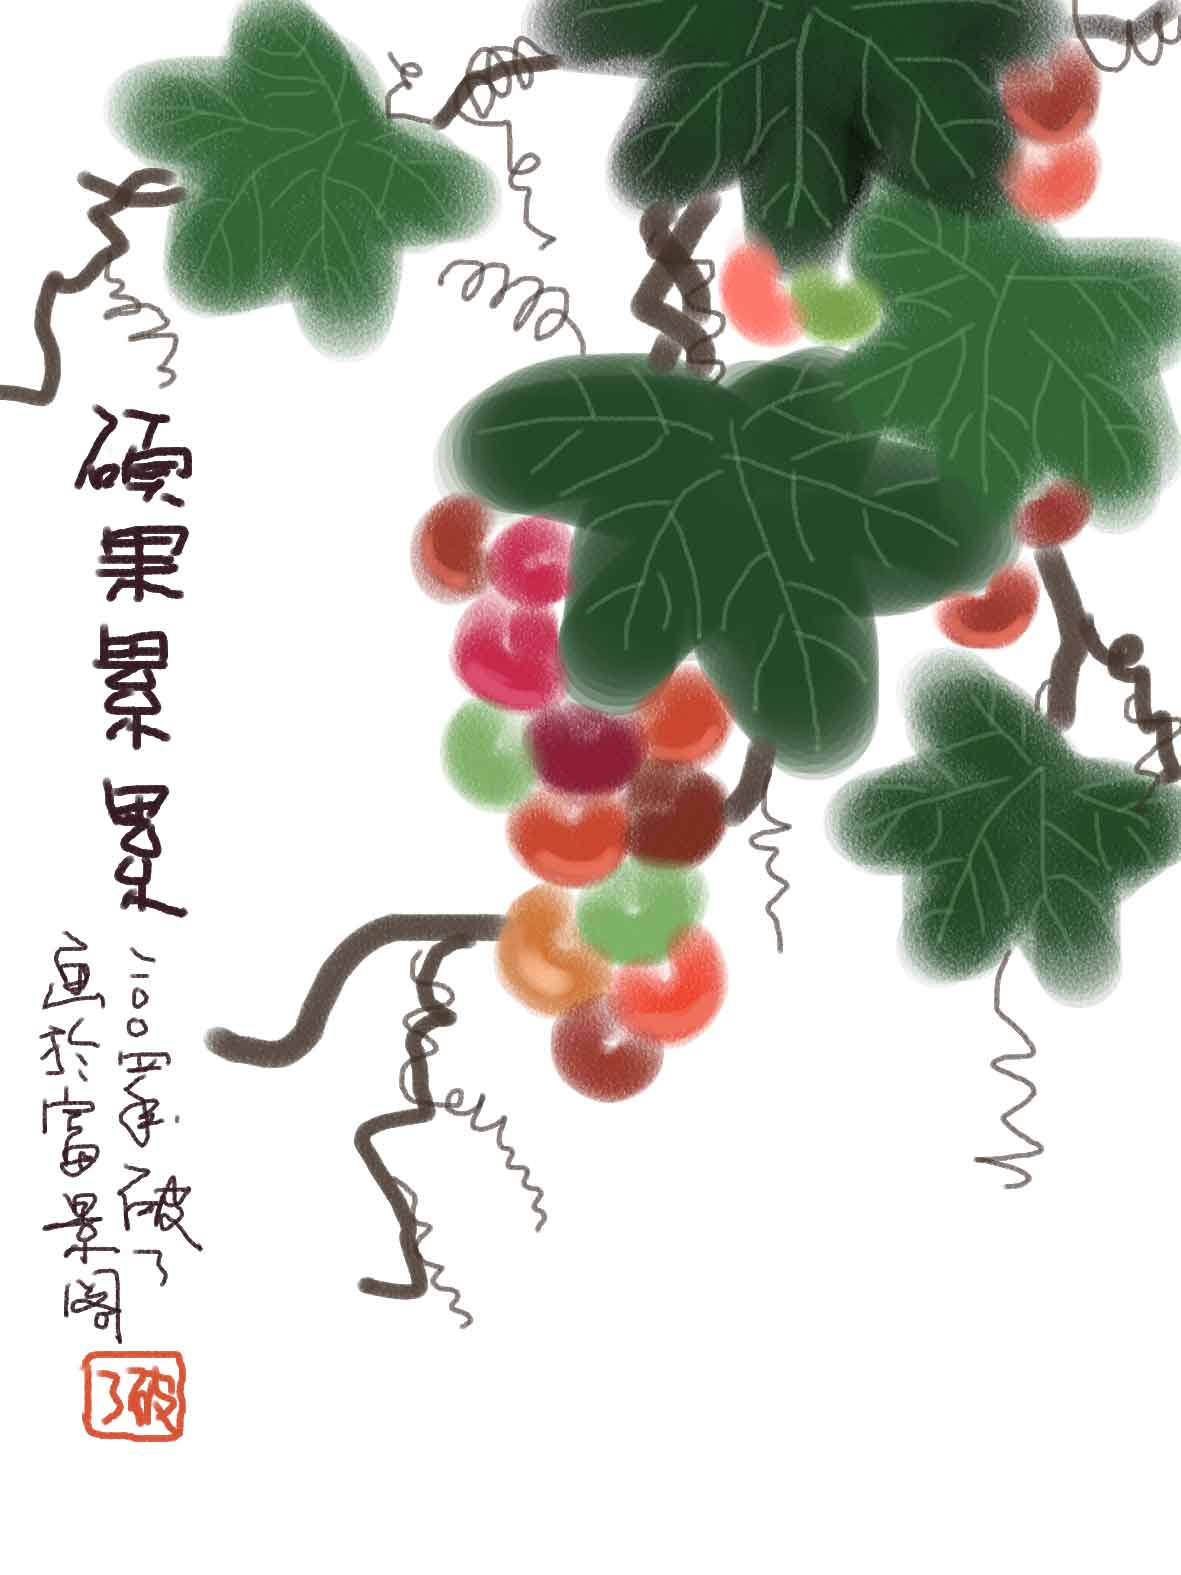 碩果累累
二00四年破了
画於富景阁
破了